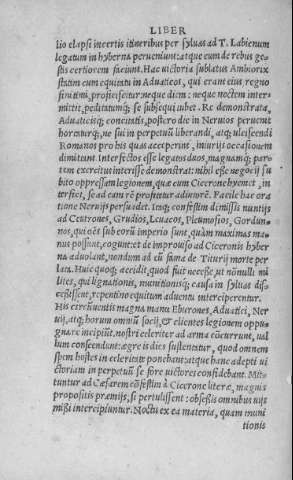 LIBER
lio elapsi incertis itineribus per syluas ad T. Labienum
legatum in hyberna perueniunt: atque eum de rebus ge-
stis certiorem faciunt. Hac uictoria sublatus Ambiorix
statim cum equitatu in Aduaticos, qui erant eius regno
finitimi, proficiscitur: neque diem: neque noctem inter-
mittit, peditatumq; se subsequi iubet. Re demonstrata,
Aduaticisq; concitatis, postero die in Neruios peruenit
hortaturq;, ne sui in perpetuũ liberandi, atq; ulciscendi
Romanos pro his quas acceperint, iniurijs occasionem
dimittant. Interfectos esse legatos duos, magnamq; par-
tem exercitus interisse demonstrat: nihil esse negocij su
bito oppressam legionem, quæ cum Cicerone hyemet, in
terfici, se ad eam rẽ profitetur adiutorẽ. Facile hac ora
tione Neruijs persuadet. Itaq; confestim dimissis nuntijs
ad Ceutrones, Grudios, Leuacos, Pleumosios, Gordun-
nos, qui oẽs sub eorũ imperio sunt, quàm maximas ma-
nus possunt, cogunt: et de improuiso ad Ciceronis hyber
na aduolant, nondum ad eũ fama de Titurij morte per
lata. Huic quoq; accidit, quod fuit necesse, ut nõnulli mi
lites, qui lignationis, munitionisq; causa in syluas dis-
cessissent, repentino equitum aduentu interciperentur.
His circũuentis magna manu Eburones, Aduatici, Ner
uij, atq; horum omniũ socij, et clientes legionem oppu-
gnare incipiũt. nostri celeriter ad arma cõcurrunt, ual
lum conscendunt: ægre is dies sustentatur, quod omnem
spem hostes in celeritate ponebant: atque hanc adepti ui
ctoriam in perpetuũ se fore uictores confidebant. Mit-
tuntur ad Cæsarem cõfestim à Cicerone literæ, magnis
propositis præmijs, si pertulissent: obsessis omnibus uijs
missi intercipiuntur. Noctu ex ea materia, quam muni
tionis